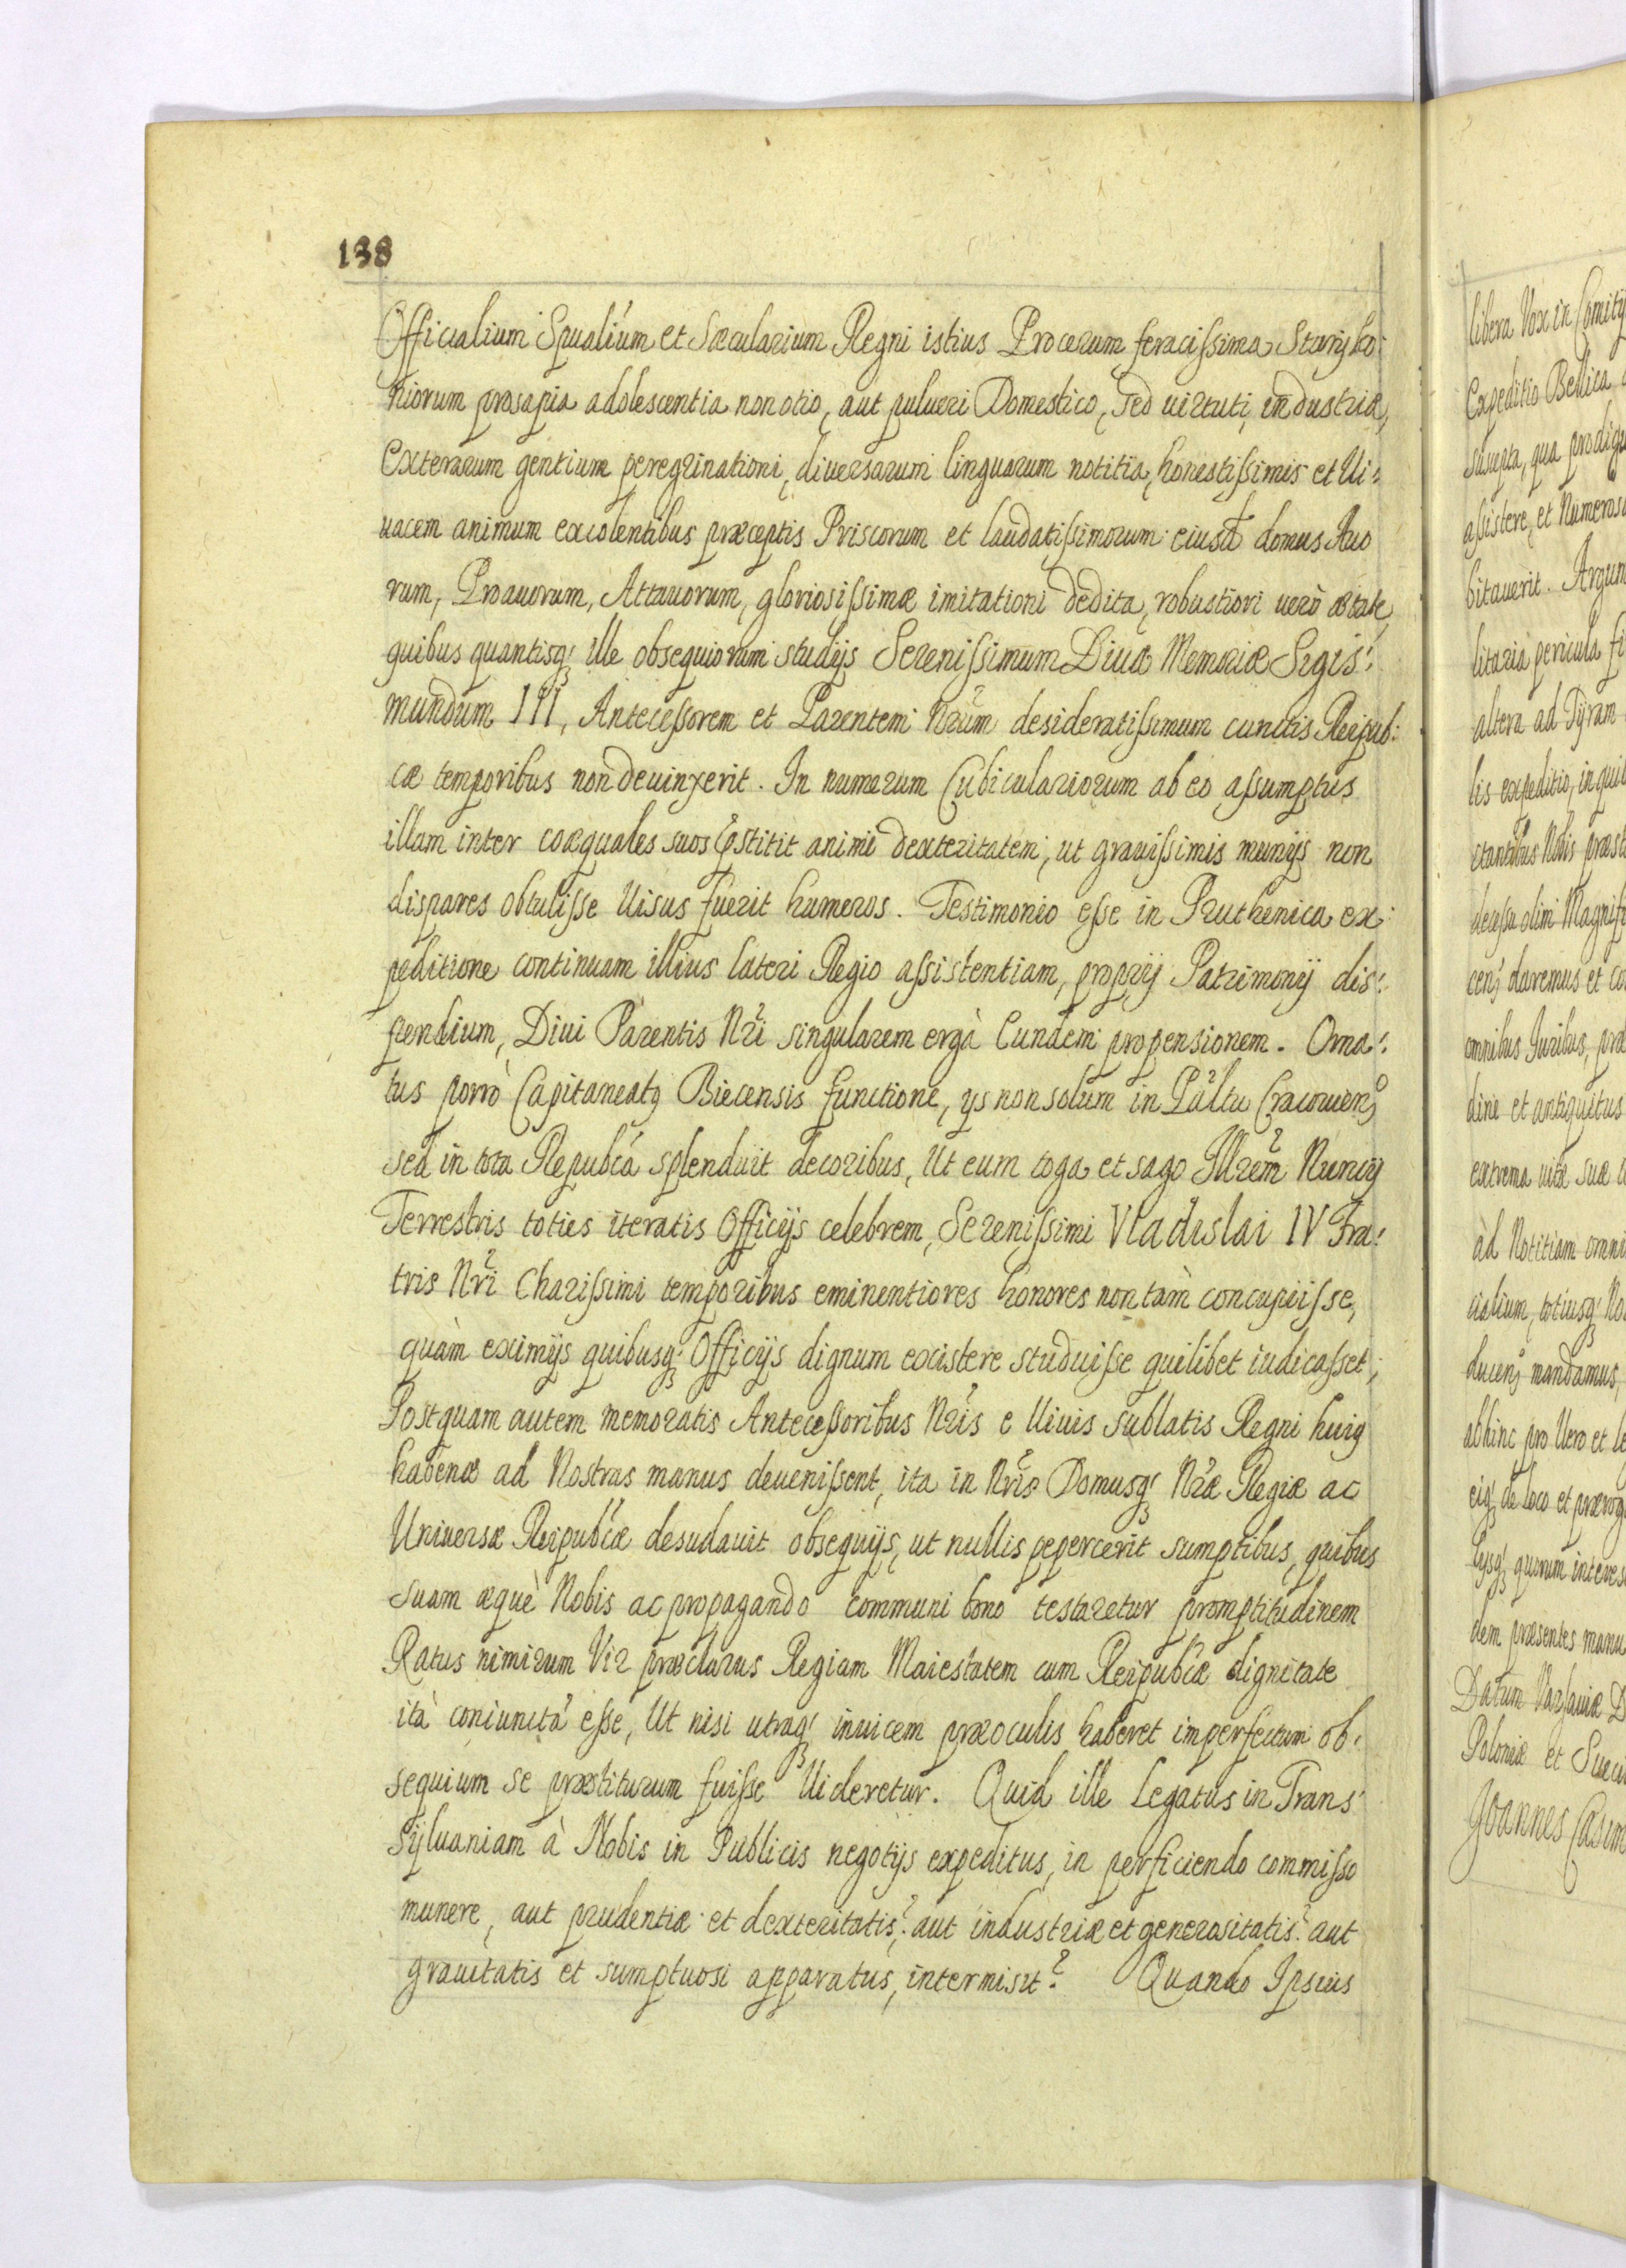 138
Officialium Spualium et Sæcularium Regni istius Procerum feracissima Staryko:
niorum prosapia adolescentia non otio, aut pulueri Domestico, sed uirtuti, industriæ,
Exterarum gentium peregrinationi, diuersarum linguarum notitia, honestissimis et Ui:
uacem animum excolentibus præceptis Priscorum et laudatissimorum eiusd domus Auo
rum, Proauorum, Attauorum, gloriosissimæ imitationi dedita, robustiori uerò ætate
quibus quantisq; ille obsequiorum studijs Serenissimum Diuæ Memoriæ Sigis:
mundum III, Antecessorem et Parentem Nrum desideratissimum cunctis Reipub:
cæ temporibus non deuinxerit. In numerum Cubiculariorum ab eo assumptus
illam inter coæquales suos pstitit animi dexteritatem, ut grauissimis munijs non
dispares obtulisse Uisus fuerit humeros. Testimonio esse in Pruthenica ex:
peditione continuam illius lateri Regio assistentiam, proprij Patrimonij dis:
pendium, Diui Parentis Nri singularem ergà Eundem propensionem. Orna:
tus porrò Capitaneatq Biecensis functione, ijs non solum in Pałtu Cracouien;
sed in tota Republca splenduit decoribus, Ut eum toga et sago Illrem Nuncij
Terrestris toties iteratis Officijs celebrem, Serenissimi Vladislai IV Fra:
tris Nri Charissimi temporibus eminentiores honores non tàm concupiisse,
quàm eximijs quibusq; Officijs dignum existere studuisse quilibet iudicasset;
Postquam autem memoratis Antecessoribus Nris e Uiuis sublatis Regni huiq
habenæ ad Nostras manus deuenissent, ita in Nris Domusq; Nræ Regiæ ac
Uniuersæ Reipublcæ desudauit obsequijs, ut nullis pepercerit sumptibus, quibus
suam æquè Nobis ac propagando communi bono testaretur promptitudinem
Ratus nimirum Vir præclarus Regiam Maiestatem cum Reipublcæ dignitate
ità coniuncta esse, Ut nisi utraq; inuicem præ oculis haberet imperfectum ob:
sequium se præstiturum fuisse Uideretur. Quid ille Legatus in Trans:
syluaniam à Nobis in Publicis negotijs expeditus, in perficiendo commisso
munere, aut prudentiæ et dexteritatis? aut industriæ et generositatis? aut
grauitatis et sumptuosi apparatus, intermisit? Quando Ipsius
libera Vox in Comitij
Expeditio Bellica
suscepta, qua prodig
assistere, et Numeros
bitauerit. Argum
litaria pericula
altera ad Tyram
lis expeditio, in qui
ctantibus Nobis præst
decessu olim Magnif
cen; daremus et co
omnibus Juribus, præ
dine et antiquitus
extrema uitæ suæ
ad Notitiam omni
cialium, totiusq; No
ducen; mandamus,
abhinc pro Uero et le
eiq; de Loco et prærog
quorum interes
dem præsentes manu
Datum Varsauiæ D
Poloniæ et Sueci
Joannes Casim